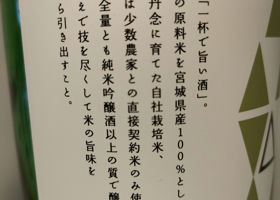 「一杯で旨い酒」。
の原料米を宮城県産100%とし
丹念に育てた自社栽培米、
は少数農家との直接契約米のみ使
全量とも純米吟醸酒以上の質で醸
えで技を尽くして米の旨味を
ら引き出すこと。